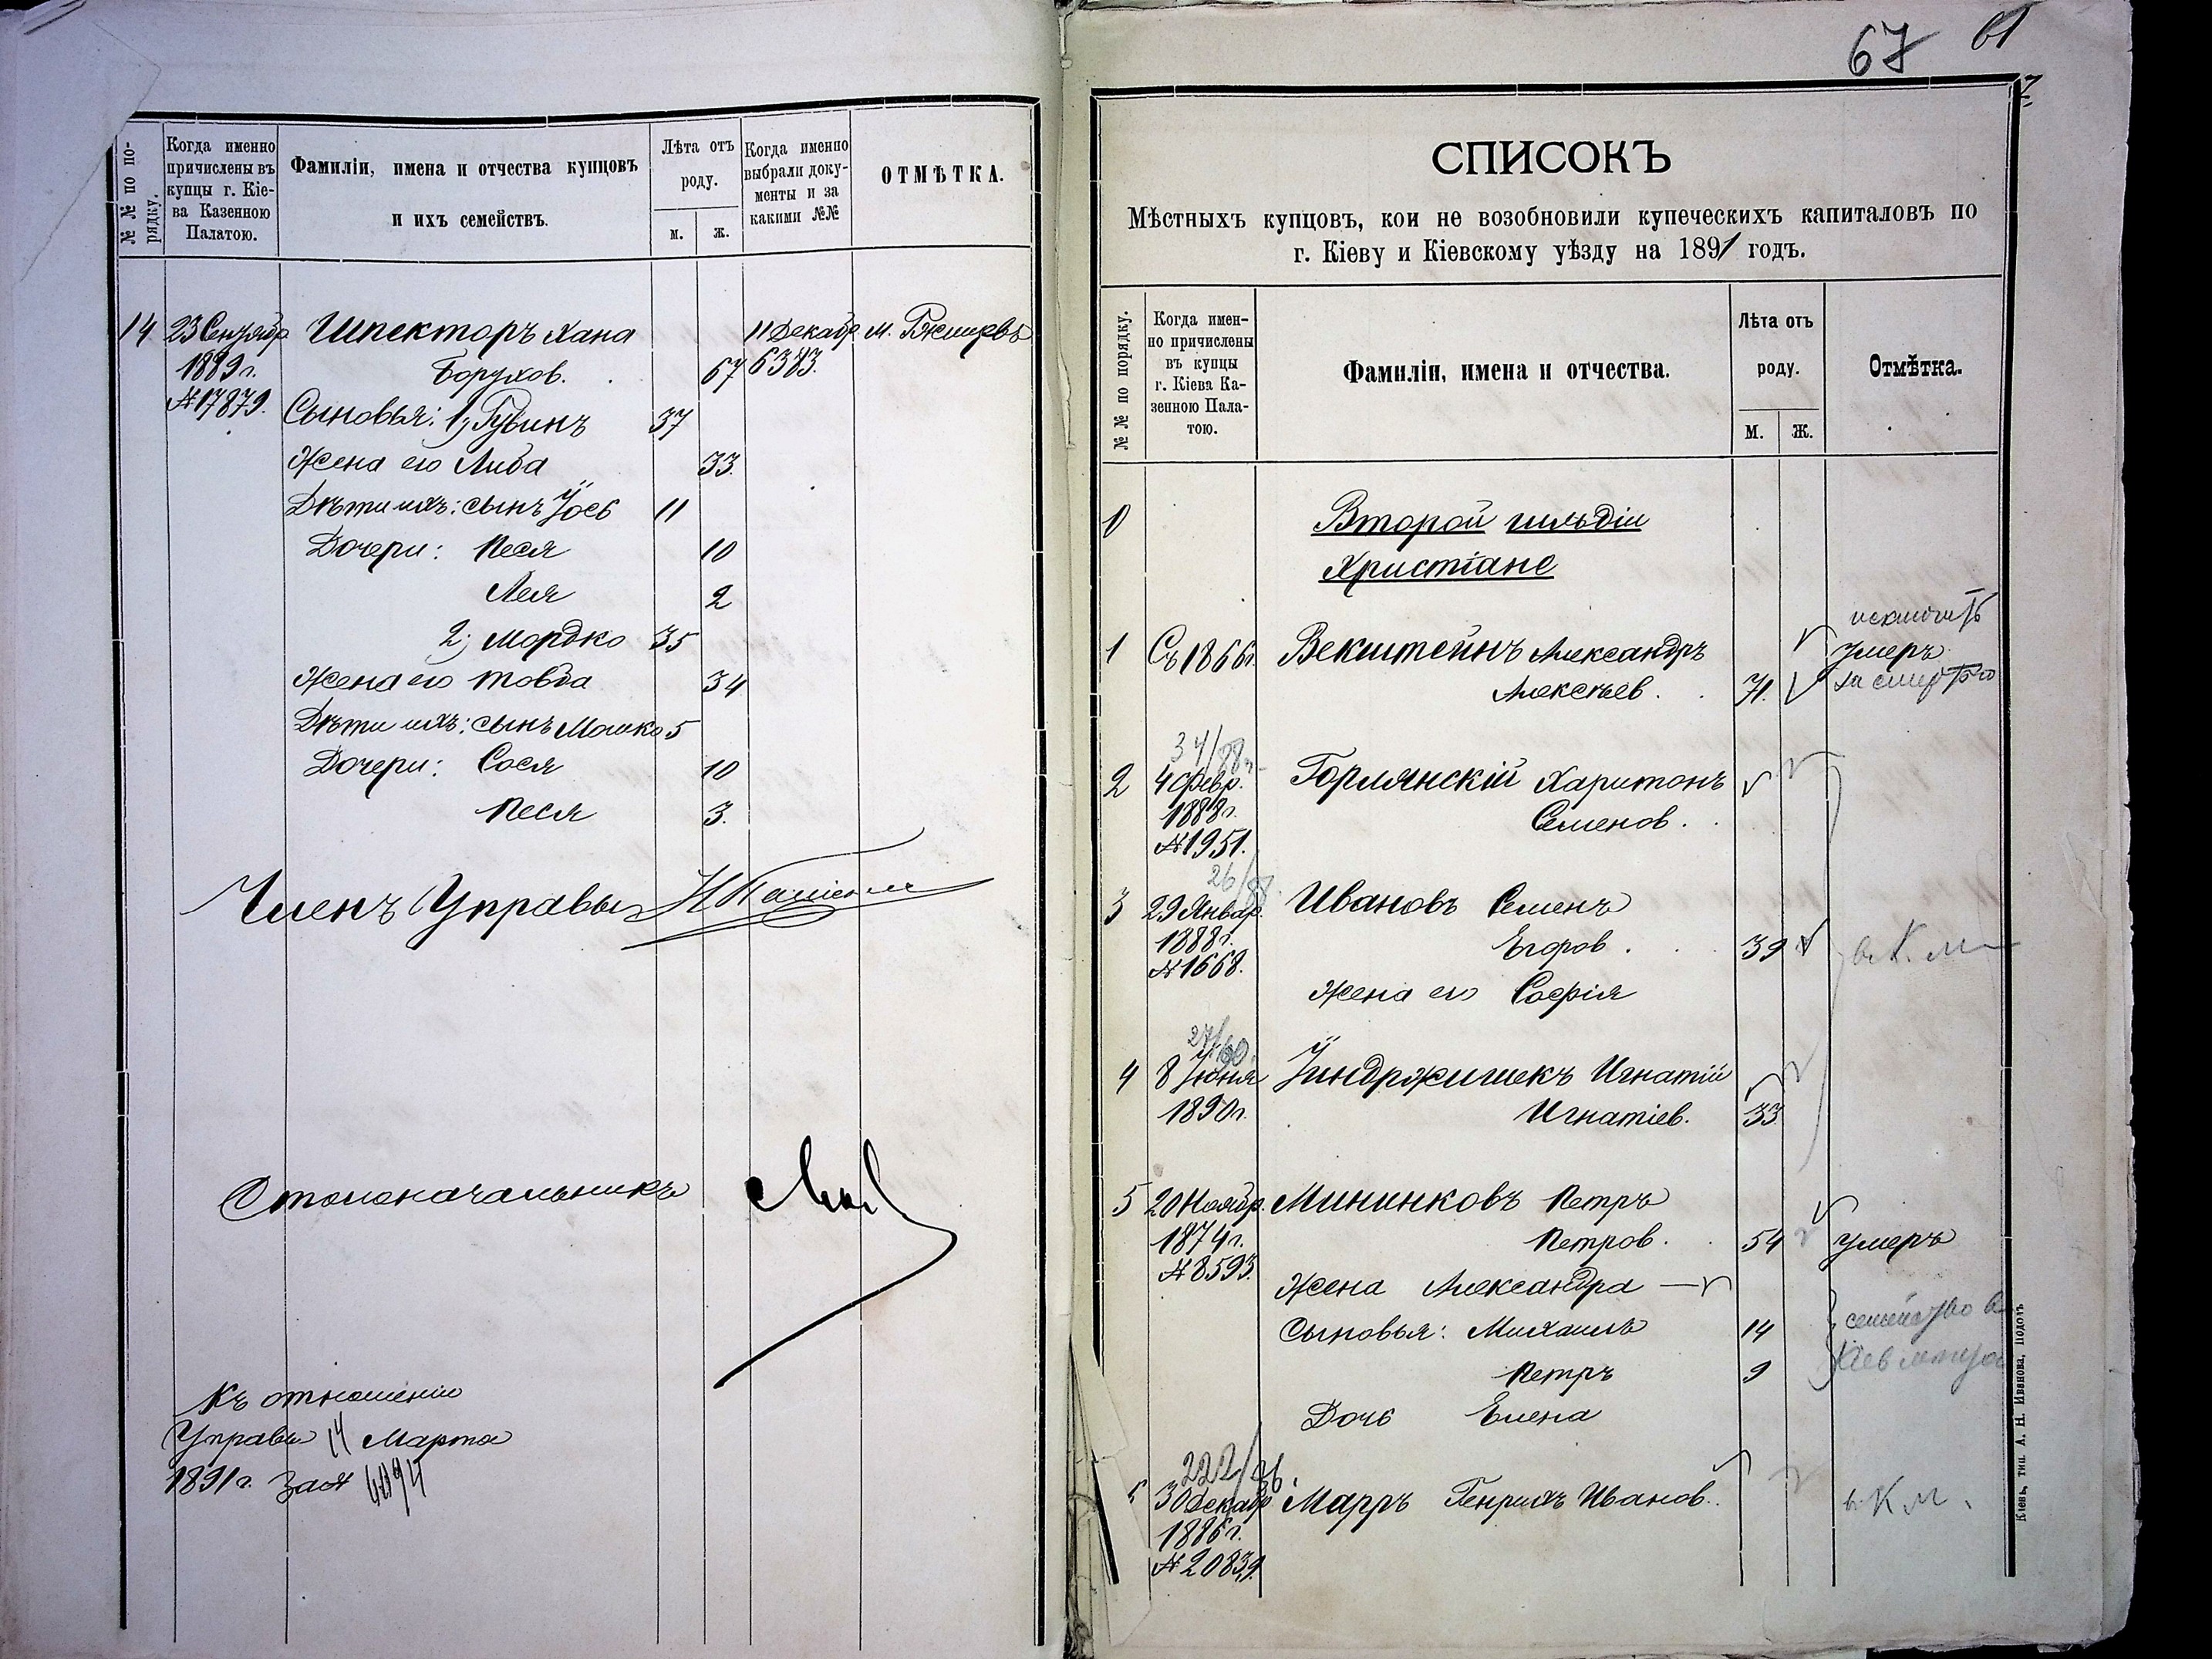 № № по по-
рядку.
Когда именно
причислены въ
купцы г. Кіе-
ва Казенною
Палатою.
Фамиліи, имена и отчества купцовъ
и ихъ семействъ.
Лѣта отъ
роду.
м. ж.
Когда именно
выбрали доку-
менты и за
какими №№
ОТМѢТКА.
14 23 Сентябр. Шпекторъ Хана 11 Декабр. м. Ржищевъ
1889 г. Борухов. 67 6383.
№ 17879. Сыновья: 1, Рувинъ 37
Жена его Либа 33.
Дѣти ихъ: сынъ Йось 11
Дочери: Песя 10
Лея 2
2, Мордко 35
Жена его Товба 34
Дѣти ихъ: сынъ Мошко 5
Дочери: Сося 10
Песя 3.
Членъ Управы
Столоначальникъ
Къ отношенію
Управы 14 Марта
1891 г. за №
67 61
7
СПИСОКЪ
Мѣстныхъ купцовъ, кои не возобновили купеческихъ капиталовъ по
г. Кіеву и Кіевскому уѣзду на 1891 годъ.
№ № по порядку.
Когда имен-
но причислены
въ купцы
г. Кіева Ка-
зенною Пала-
тою.
Фамиліи, имена и отчества.
Лѣта отъ
роду.
м. ж.
Отмѣтка.
Второй гильдіи
Христіане
исключить
1 Съ 1866 г. Векштейнъ Александръ умеръ
Алексѣев. 71. за смертью
37/88 г.
2 4 Февр. Горлянскій Харитонъ
1888 г. Семенов.
№ 1951.
26/88.
3 29 Январ. Ивановъ Семенъ
1888 г. Егоров. 39 в К. м
№ 1668.
Жена его Софія
27/90.
4 8 Іюня Йиндржишекъ Игнатій
1890 г. Игнатіев. 33
5 20 Ноябр. Мининковъ Петръ
1874 г. Петров. 54 умеръ
№ 8593.
Жена Александра
Сыновья: Михаилъ 14 семейство в
Петръ 9
Дочь Елена
222/86
30 Декабр. Марръ Генрихъ Иванов. в К м.
1886 г.
№ 20839.
Кіевъ, тип. А. Н. Иванова, Подолъ